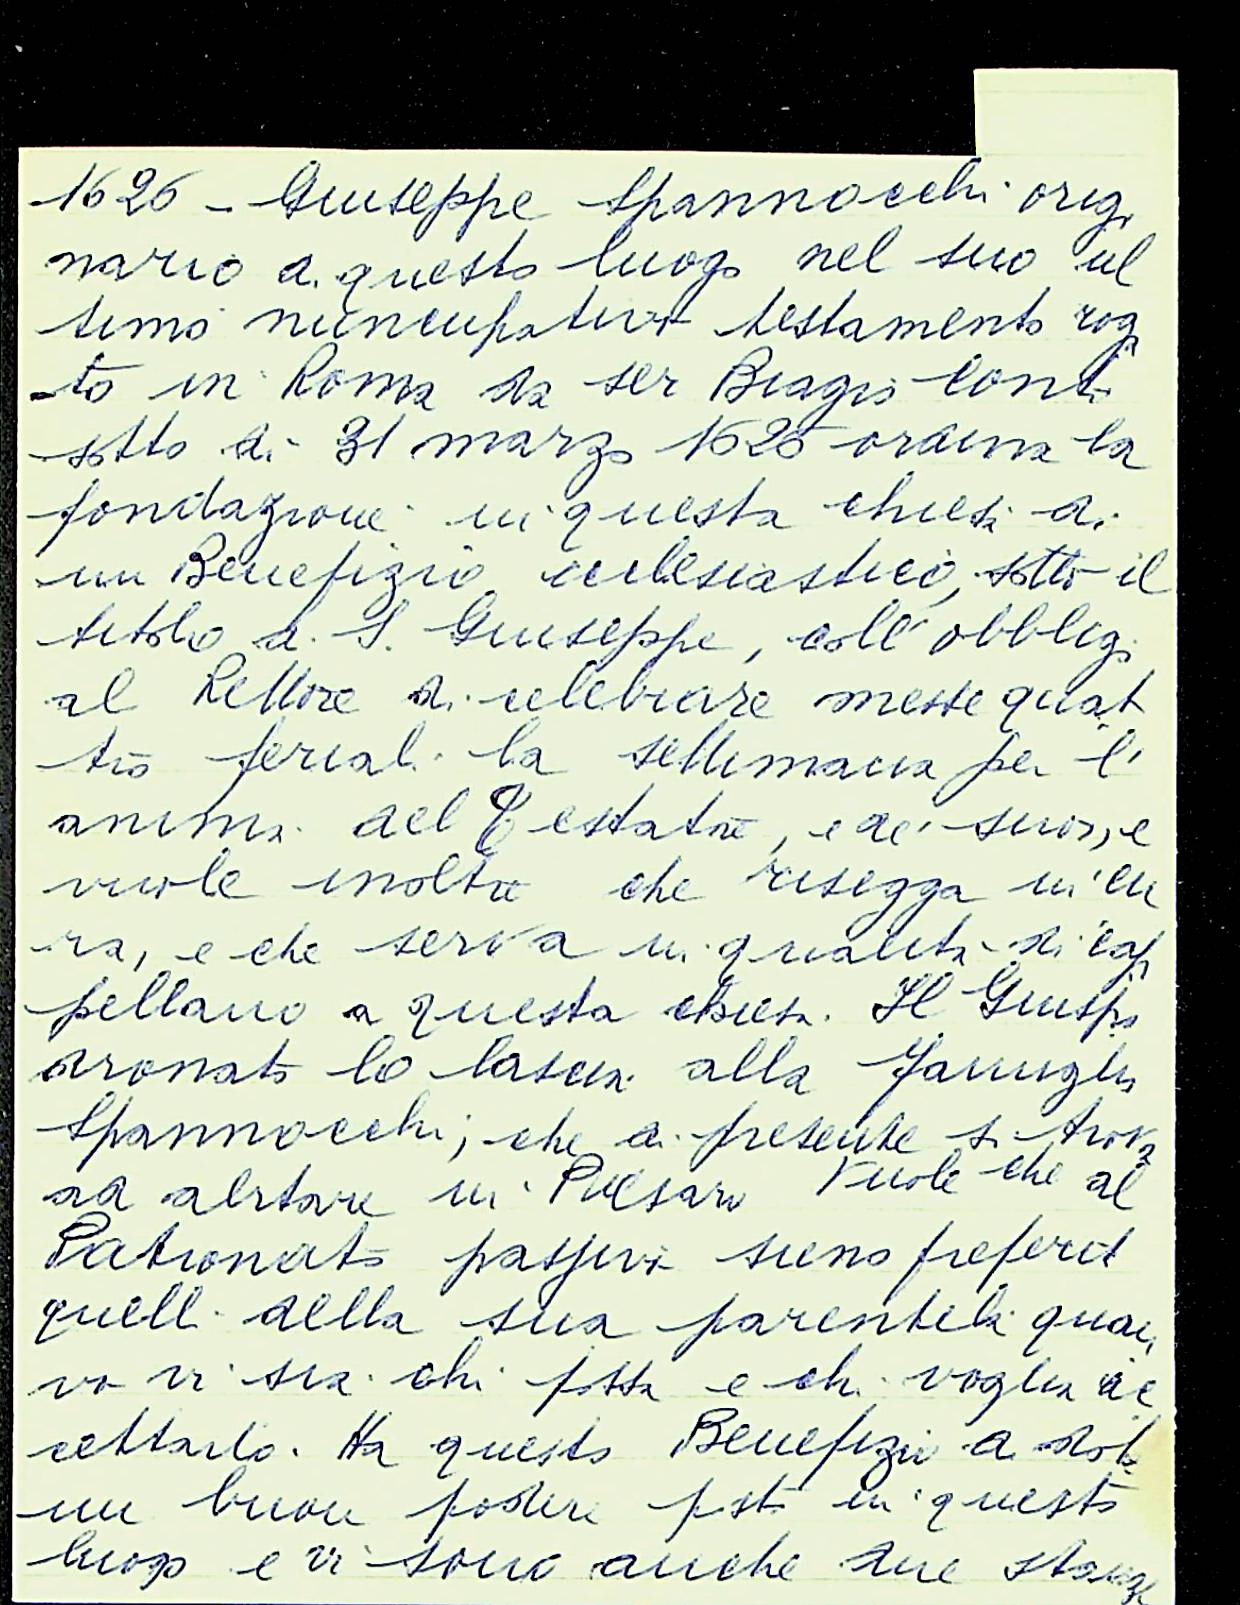 1626 - Giuseppe Spannocchi origi
nario di questo luogo nel suo ul
timo nuncupativo testamento roga
to in Roma da ser Biagio Conti
sotto di 31 marzo 1626 ordina la
fondazione in questa chiesa di
un Benefizio ecclesiastico, sotto il
titolo di S. Giuseppe, coll'obbligo
al Rettore di celebrare messe quat
tro feriali la settimana per l'
anima del Testatore, e de' suoi, e
vuole inoltre che risegga in cu
ra, e che serva in qualità di cap
pellano a questa chiesa. Il Giuspa
dronato lo lascia alla Famiglia
Spannocchi, che di presente si trova
ad abitare in Pesaro Vuole che al
Patronato passivo sieno preferiti
quelli della sua parentela quan
vo vi sia chi possa e chi voglia ac
cettarlo. Ha questo Benefizio di dote
un buon podere posto in questo
luogo e vi sono anche due stanze